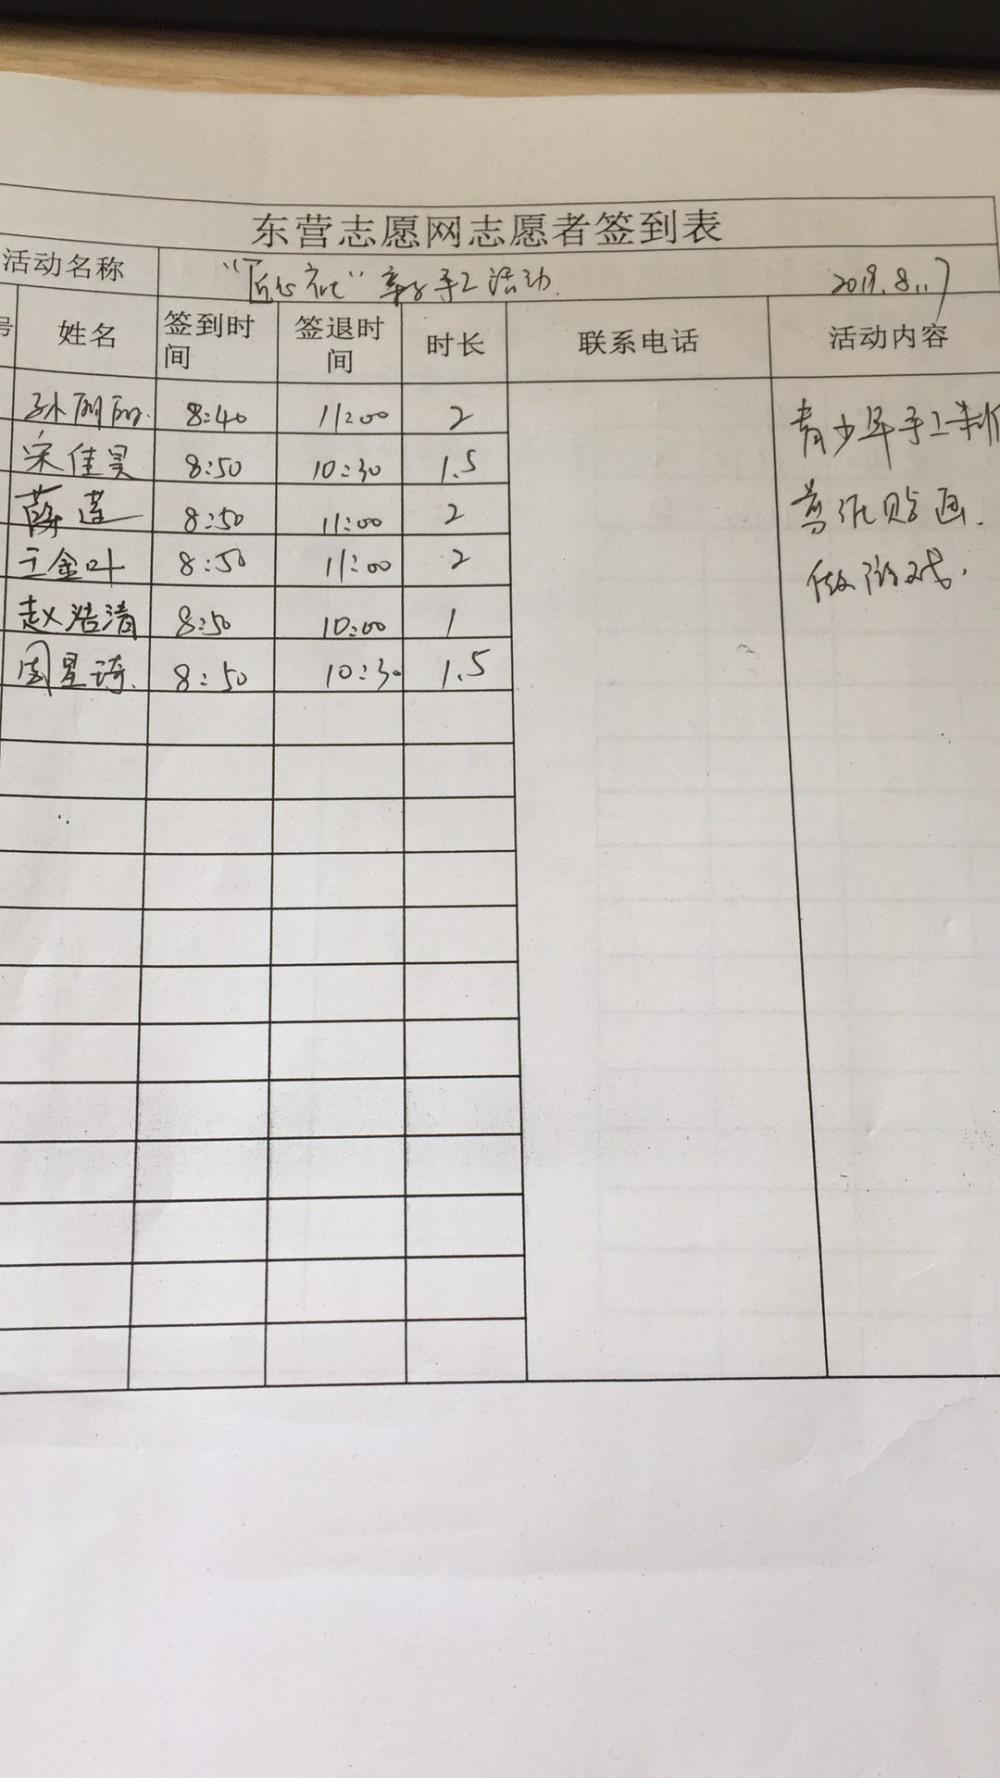 东营志愿网志愿者签到表
活动名称 "匠心 " 亲子手工活动. 2019.8.17
号 姓名 签到时间 签退时间 时长 联系电话 活动内容
孙丽丽. 8:40 11:00 2 青少年手工制作
宋佳昊 8:50 10:30 1.5
薛莲 8:50 11:00 2 贴画.
王金叶 8:50 11:00 2 做游戏.
赵浩清 8:50 10:00 1
周星琦. 8:50 10:30 1.5